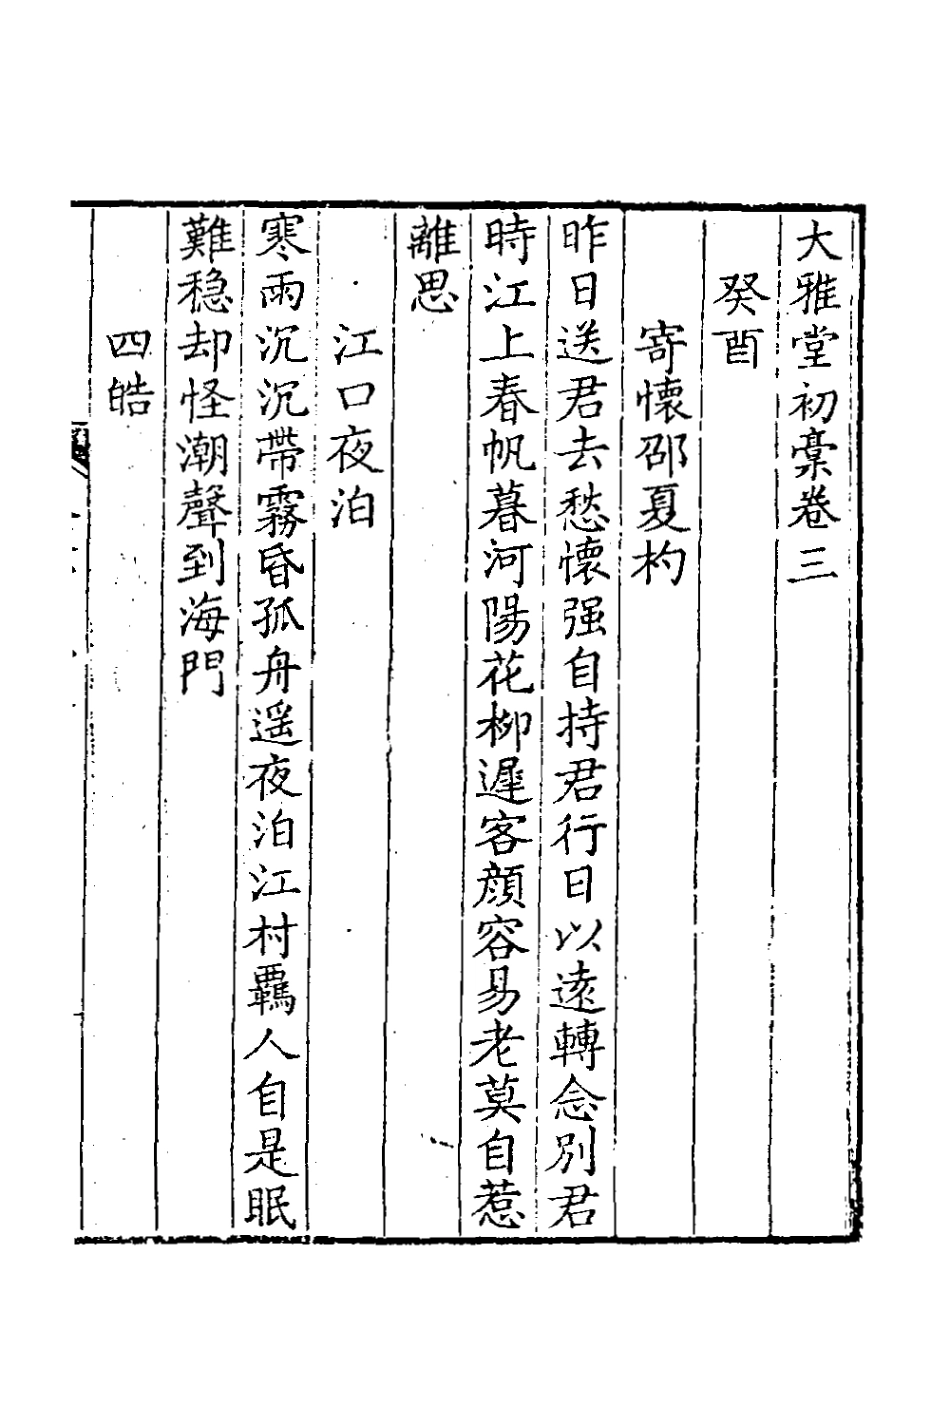 大雅堂初稾卷三
癸酉
寄懷邵夏杓
昨日送君去愁懷强自持君行日以遠轉念別君
時江上春帆暮河陽花柳遲客顔容易老莫自惹
離思
江口夜泊
寒雨沉沉帶霧昏孤舟遥夜泊江村羈人自是眠
難穏却怪潮聲到海門
四皓